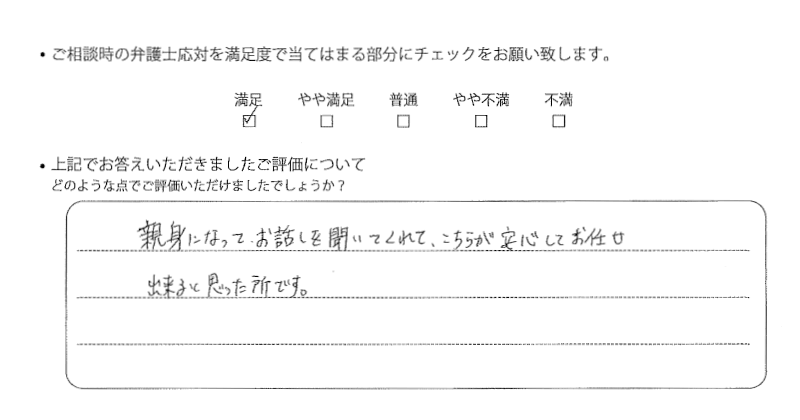 ・ご相談時の弁護士応対を満足度で当てはまる部分にチェックをお願い致します。
満足 やや満足 普通 やや不満 不満
☑ □ □ □ □
・上記でお答えいただきましたご評価について
どのような点でご評価いただけましたでしょうか？
親身になって、お話しを聞いてくれて、こちらが安心してお任せ
出来ると思った所です。